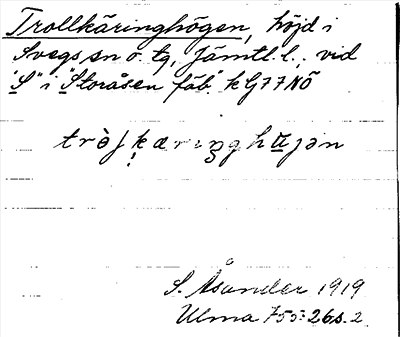 Trollkäringhögen, höjd i
Svegs sn o. tg, Jämtl. l., vid
"S" i "Storåsen fäb." kG77NÖ
S. Åsander 1919
Ulma 755: 26 s. 2.